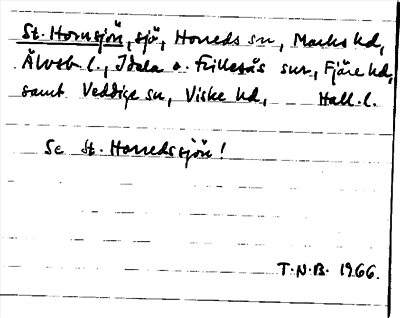 St. Hornsjön, sjö, Horreds sn, Marks hd,
Älvsb. l., Idala o. Frillesås snr, Fjäre hd,
samt Veddige sn, Viske hd, Hall. l.
Se St. Horredssjön!
T.N.B. 1966.